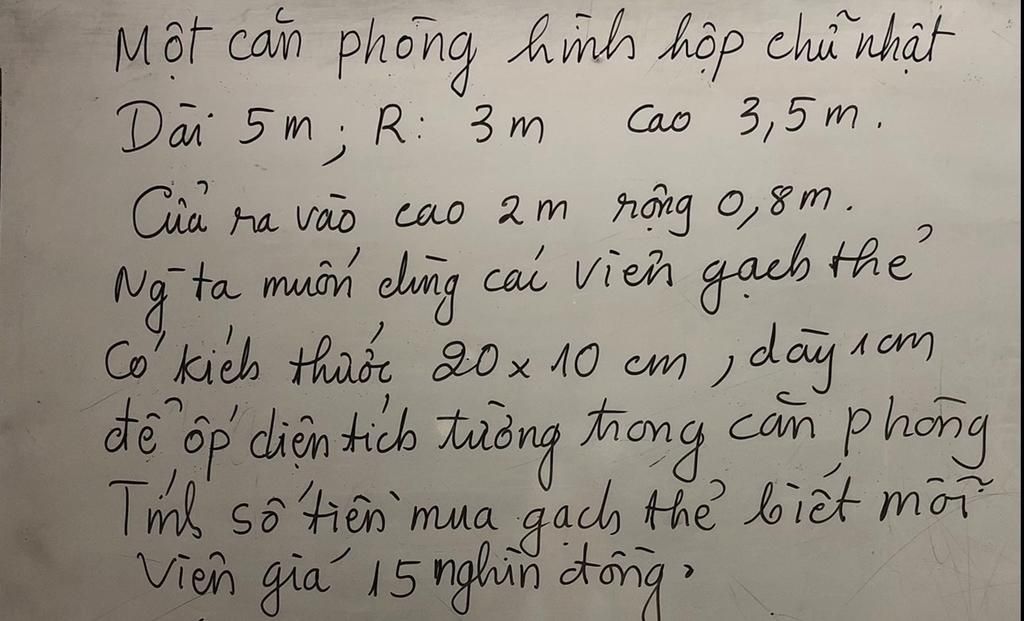 Một căn phòng hình hộp chữ nhật
Dài 5m; R: 3m cao 3,5m.
Cửa ra vào cao 2m rộng 0,8m.
Ng-ta muốn dùng cái viên gạch thẻ
Có kích thước 20 x 10 cm, dày 1cm
để ốp diện tích tường trong căn phòng
Tính số tiền mua gạch thẻ biết mỗi
viên giá 15 nghìn đồng.